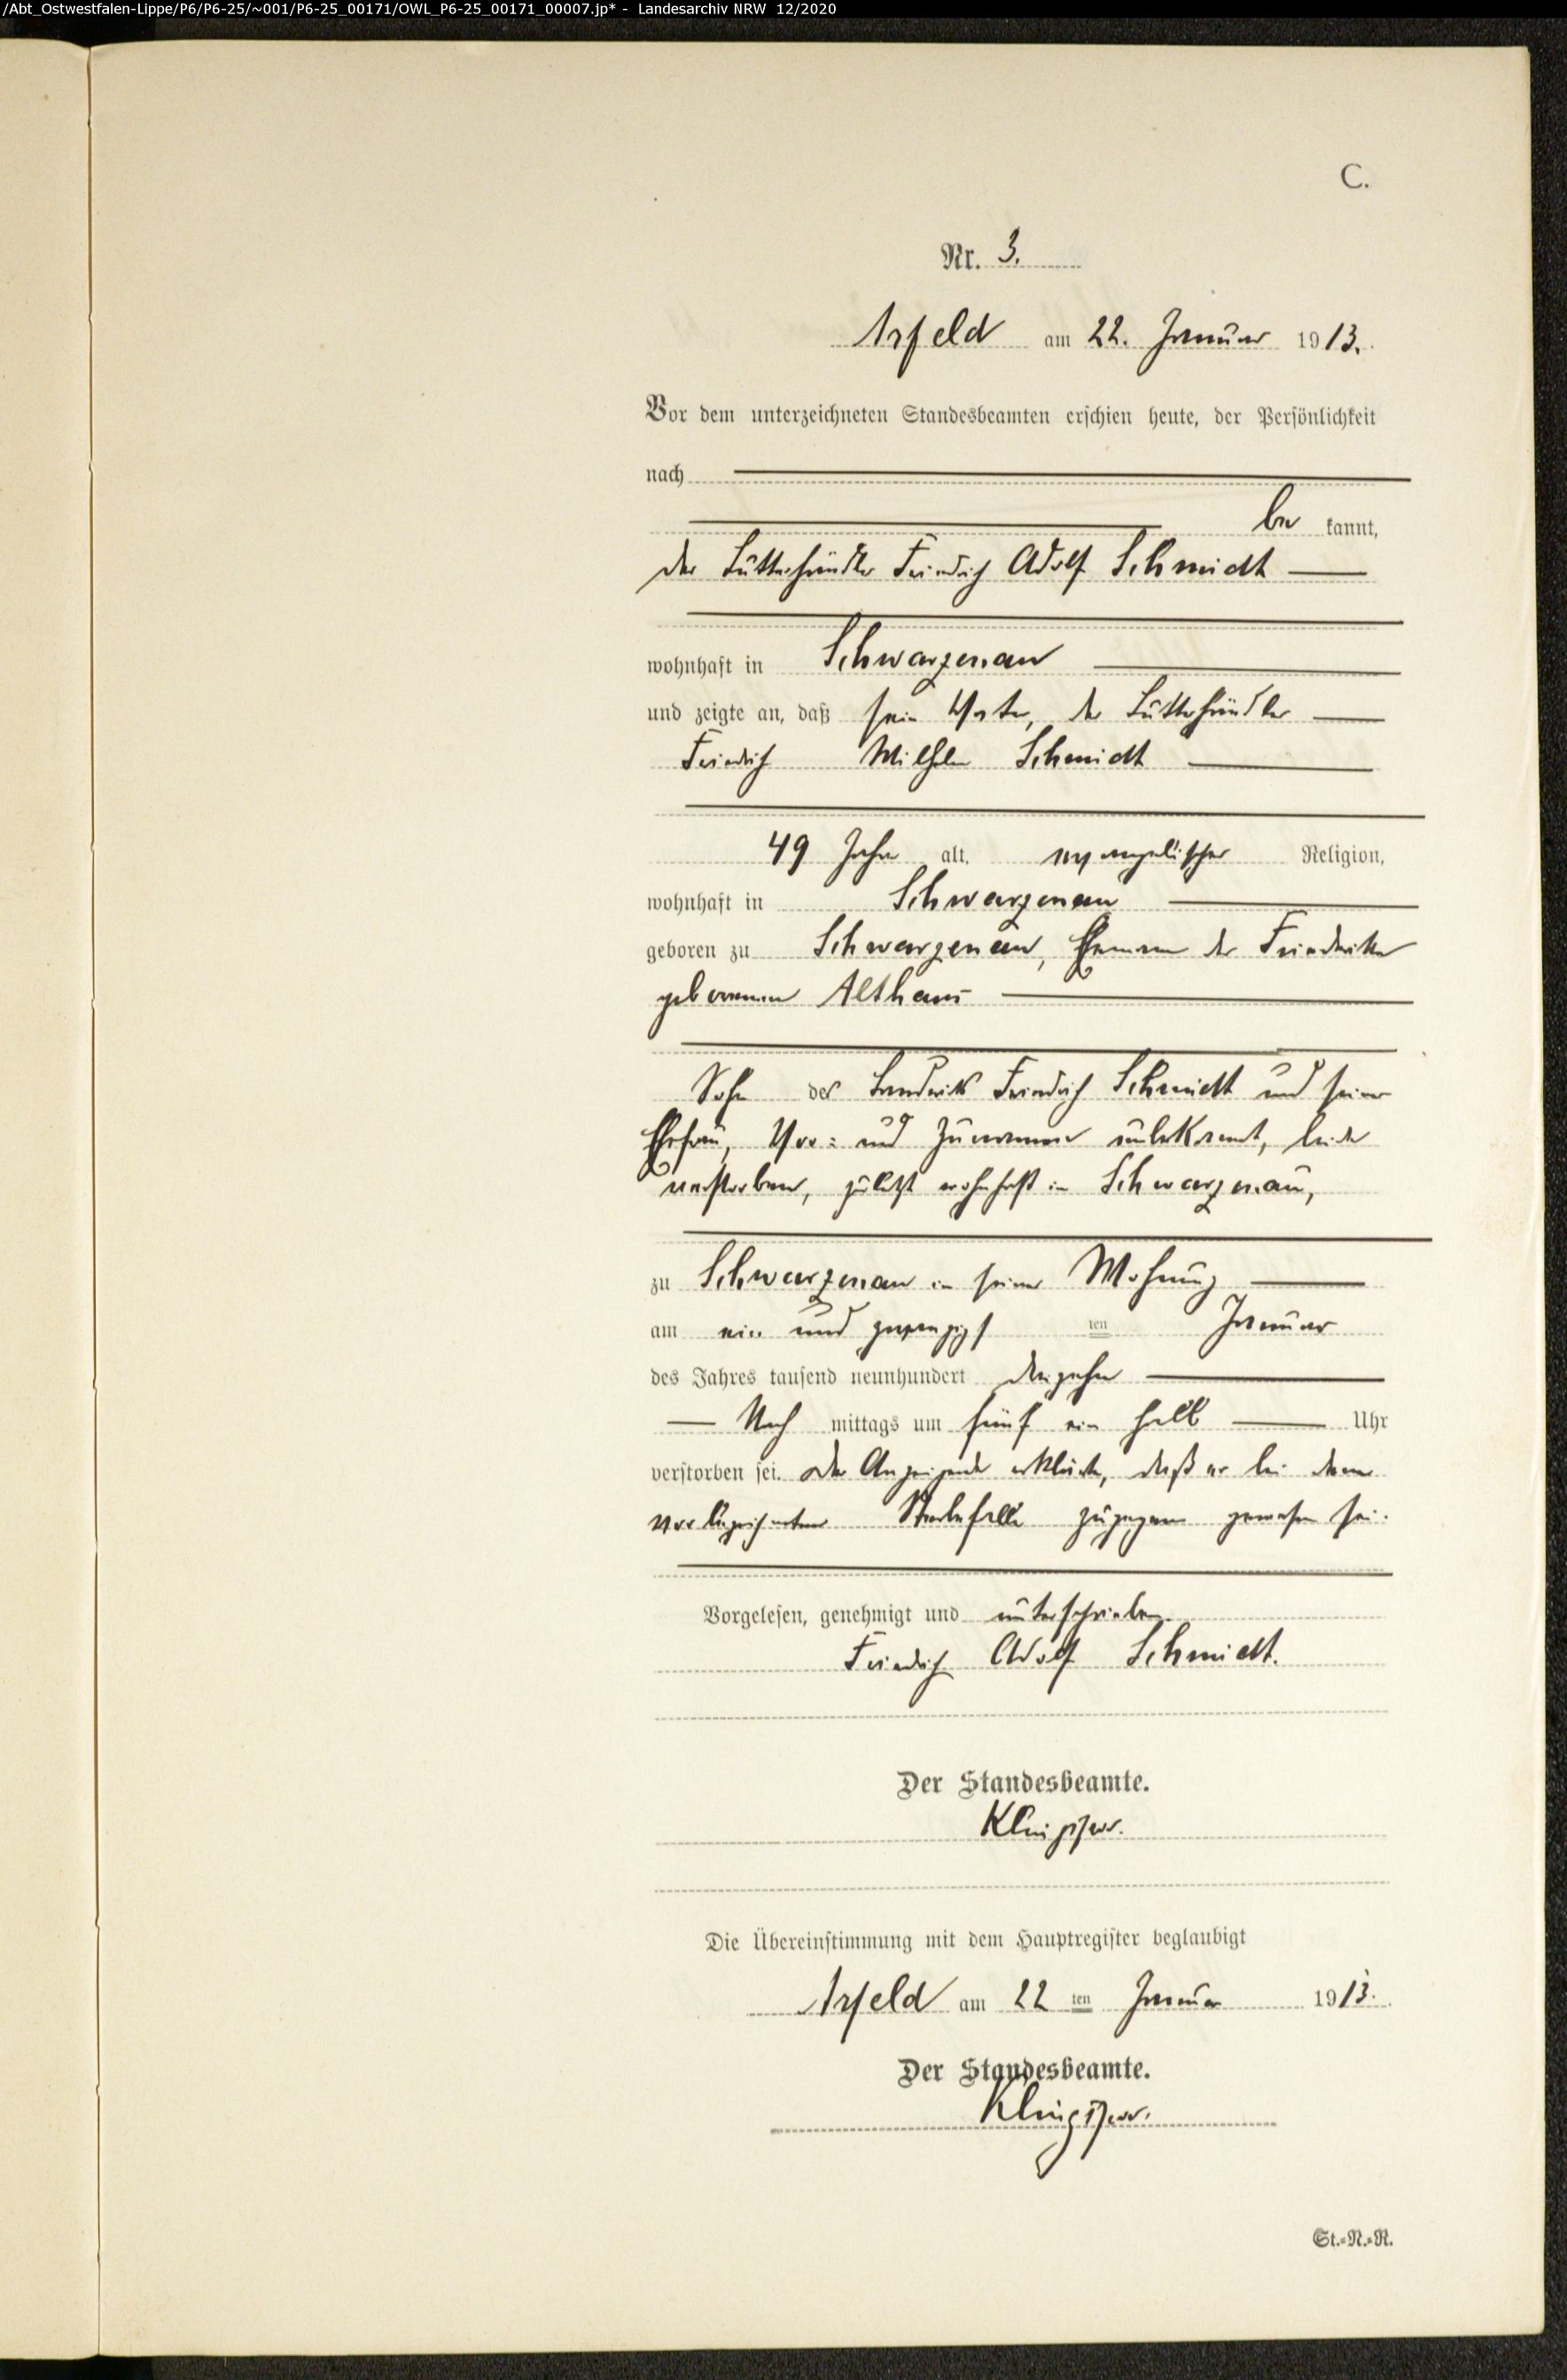 /Abt_Ostwestfalen-Lippe/P6/P6-25/~001/P6-25_00171/OWL_P6-25_00171_00007.jp* - Landesarchiv NRW 12/2020
C.
Nr. 3.
Arfeld am 22. Januar 1913.
Vor dem unterzeichneten Standesbeamten erschien heute, der Persönlichkeit
nach
be kannt,
der Friedrich Adolf Schmidt
wohnhaft in Schwarzenau
und zeigte an, daß sein Vater, der
Friedrich Wilhelm Schmidt
49 Jahre alt, evangelischer Religion,
wohnhaft in Schwarzenau
geboren zu Schwarzenau, Ehemann der Friederike
geborenen Althaus
Sohn des Landwirts Friedrich Schmidt und seiner
Ehefrau, Vor= und Zunamen unbekannt, beide
verstorben, zuletzt wohnhaft in Schwarzenau,
zu Schwarzenau in seiner Wohnung
am ein und zwanzigs ten Januar
des Jahres tausend neunhundert dreizehn
Nach mittags um fünf ein halb Uhr
verstorben sei. Der Anzeigende erklärte, daß er bei dem
vorbezeichneten Sterbefalle zugegen gewesen sei.
Vorgelesen, genehmigt und unterschrieben.
Friedrich Adolf Schmidt.
Der Standesbeamte.
Die Übereinstimmung mit dem Hauptregister beglaubigt
Arfeld am 22 ten Januar 1913.
Der Standesbeamte.
St.=N.=R.